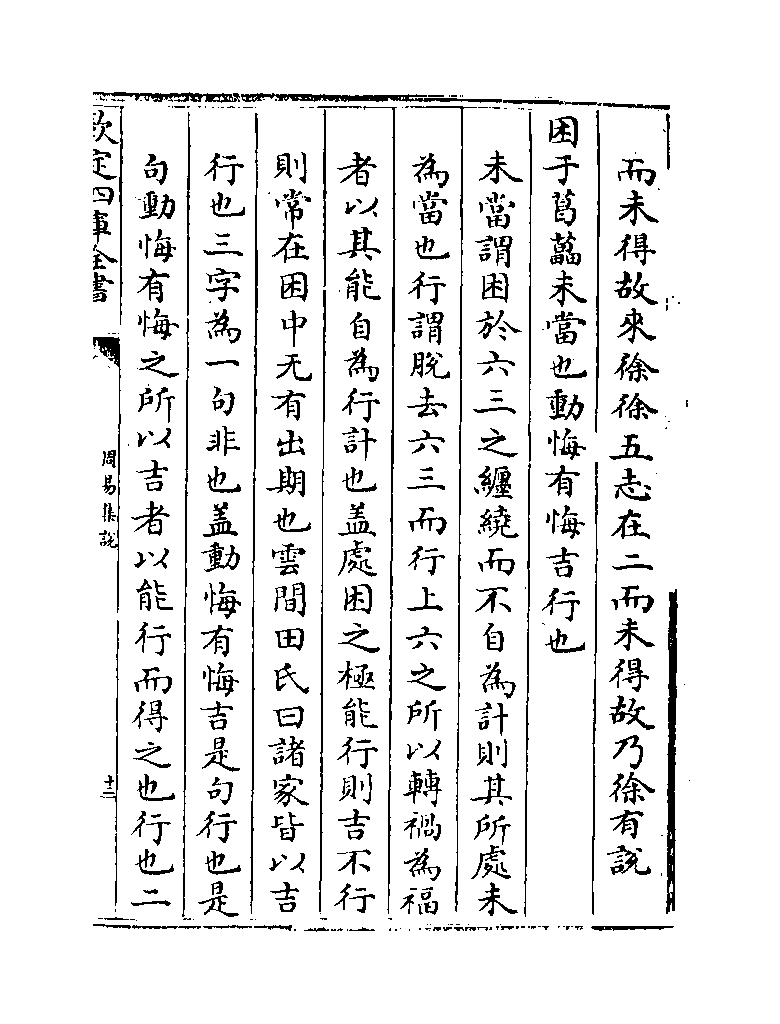 而未得故來徐徐五志在二而未得故乃徐有說
困于葛藟未當也動悔有悔吉行也
未當謂困於六三之纏繞而不自為計則其所處未
為當也行謂脫去六三而行上六之所以轉禍為福
者以其能自為行計也盖處困之極能行則吉不行
則常在困中无有出期也雲間田氏曰諸家皆以吉
行也三字為一句非也盖動悔有悔吉是句行也是
句動悔有悔之所以吉者以能行而得之也行也二
欽定四庫全書
周易集說
十二